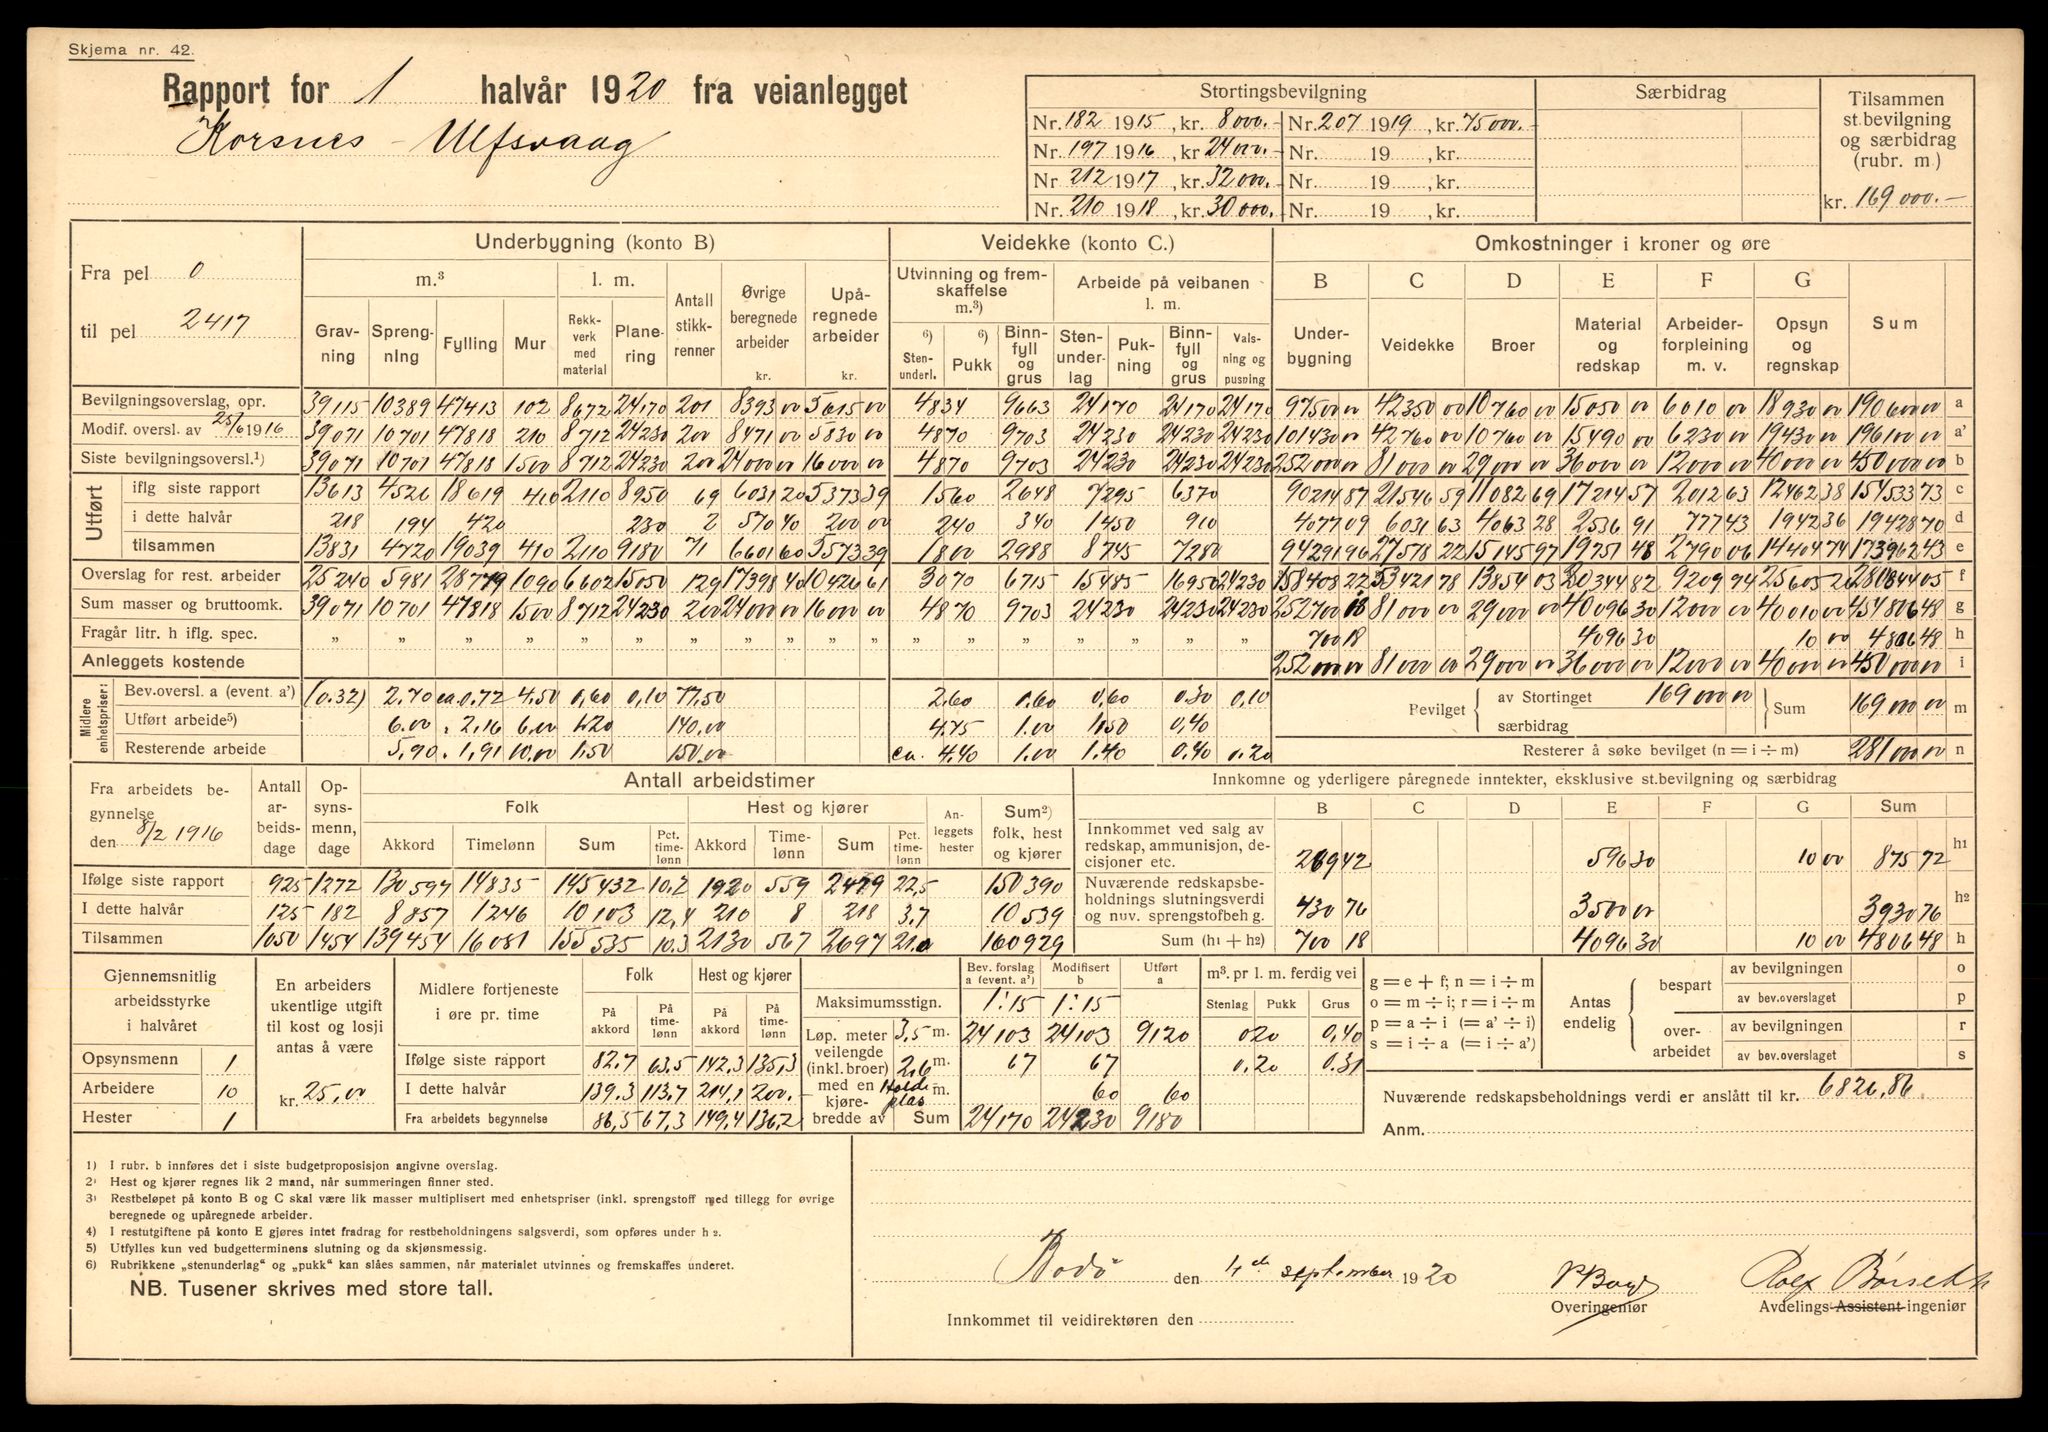 Skjema nr. 42.
Rapport for 1 halvår 1920 fra veianlegget
Korsnes - Ulfsvaag
Stortingsbevilgning
Særbidrag
Tilsammen st.bevilgning og særbidrag (rubr. m)
Nr. 182 1915, kr. 8000.- Nr. 207 1919, kr. 75000.-
Nr. 197 1916, kr 24000.- Nr. 19 , kr.
Nr 212 1917, kr. 32000.- Nr. 19 , kr.
Nr. 210 1918, kr. 30000.- Nr. 19 , kr.
kr. 169000.-
Fra pel 0
til pel 2417
Underbygning (konto B)
m.³ l. m.
Gravning Sprengning Fylling Mur Rekkverk med material Planering Antall stikkrenner Øvrige beregnede arbeider kr. Upåregnede arbeider kr.
Veidekke (konto C.)
Utvinning og fremskaffelse m.³)
Arbeide på veibanen l. m.
6) Stenunderl. 6) Pukk Binnfyll og grus Stenunderlag Pukning Binnfyll og grus Valsning og pusning
Omkostninger i kroner og øre
B C D E F G
Underbygning Veidekke Broer Material og redskap Arbeiderforpleining m. v. Opsyn og regnskap Sum
Bevilgningsoverslag, opr. 39115 10389 47413 102 8672 24170 201 8393 00 5615 00 4834 9663 24170 24170 24170 97500 00 42350 00 10760 00 15050 00 6010 00 18930 00 190600 00 a
Modif. oversl. av 25/6 1916 39071 10701 47818 210 8712 24230 200 8471 00 5830 00 4870 9703 24230 24230 24230 101430 00 42760 00 10760 00 15490 00 6230 00 19430 00 196100 00 a'
Siste bevilgningsoversl.¹) 39071 10701 47818 1500 8712 24230 200 24000 00 16000 00 4870 9703 24230 24230 24230 252000 00 81000 00 29000 00 36000 00 12000 00 40000 00 450000 00 b
Utført
iflg siste rapport 13613 4526 18619 410 2110 8950 69 6031 20 5373 39 1560 2648 7295 6370 90214 87 21546 59 11082 69 17214 57 2012 63 12462 38 154533 73 c
i dette halvår 218 194 420 230 2 570 40 200 00 240 340 1450 910 4077 09 6031 63 4063 28 2536 91 777 43 1942 36 19428 70 d
tilsammen 13831 4720 19039 410 2110 9180 71 6601 60 5573 39 1800 2988 8745 7280 94291 96 27578 22 15145 97 19751 48 2790 06 14404 74 173962 43 e
Overslag for rest. arbeider 25240 5981 28779 1090 6602 15050 129 17398 40 10426 61 3070 6715 15485 16950 24230 158408 22 53421 78 13854 03 20344 82 9209 94 25605 26 280844 05 f
Sum masser og bruttoomk. 39071 10701 47818 1500 8712 24230 200 24000 00 16000 00 4870 9703 24230 24230 24230 252700 18 81000 00 29000 00 40096 30 12000 00 40010 00 454806 48 g
Fragår litr. h iflg. spec. " " " " " " " " " " " " " " " " " 700 18 4096 30 10 00 4806 48 h
Anleggets kostende 252000 00 81000 00 29000 00 36000 00 12000 00 40000 00 450000 00 i
Midlere enhetspriser:
Bev.oversl. a (event. a') (0.32) 2.70 ca. 0.72 4.50 0,60 0,10 77.50 2.60 0.60 0.60 0.30 0,10
Utført arbeide⁵) 6.00 " 2.16 6.00 1.20 140.00 4.75 1.00 1.50 0,40
Resterende arbeide 5,90 " 1,91 10.00 1.50 150.00 ca. 4.40 1.00 1.40 0.40 0.20
Pevilget av Stortinget 169000 00 særbidrag Sum 169000 00 m
Resterer å søke bevilget (n = i ÷ m) 281000 00 n
Fra arbeidets begynnelse den 8/2 1916
Antall arbeidsdage
Opsynsmenn, dage
Antall arbeidstimer
Folk Hest og kjører Anleggets hester Sum²) folk, hest og kjører
Akkord Timelønn Sum Pct. timelønn Akkord Timelønn Sum Pct. timelønn
Ifølge siste rapport 925 1272 130597 14835 145432 10,2 1920 559 2479 22,5 150390
I dette halvår 125 182 8857 1246 10103 12,4 210 8 218 3.7 10539
Tilsammen 1050 1454 139454 16081 155535 10.3 2130 567 2697 21.0 160929
Innkomne og yderligere påregnede inntekter, eksklusive st.bevilgning og særbidrag
B C D E F G Sum
Innkommet ved salg av redskap, ammunisjon, decisjoner etc. 269 42 596 30 10 00 875 72 h1
Nuværende redskapsbeholdnings slutningsverdi og nuv. sprengstofbeh g. 430 76 3500 00 3930 76 h2
Sum (h1 + h2) 700 18 4096 30 10 00 4806 48 h
Gjennemsnitlig arbeidsstyrke i halvåret
Opsynsmenn 1
Arbeidere 10
Hester 1
En arbeiders ukentlige utgift til kost og losji antas å være
kr. 25.00
Midlere fortjeneste i øre pr. time
Folk Hest og kjører
På akkord På timelønn På akkord På timelønn
Ifølge siste rapport 82.7 63.5 142.3 135,3
I dette halvår 139.3 113.7 214,1 200.-
Fra arbeidets begynnelse 86,5 67,3 149,4 136,2
Bev. forslag a (event. a') Modifisert b Utført a
Maksimumsstign. 1:15 1:15
Løp. meter veilengde (inkl. broer) med en kjørebredde av
3,5 m. 24103 24103 9120
2.6 m. 67 67
Holdeplas m. 60 60
Sum 24170 24230 9180
m³. pr l. m. ferdig vei
Stenlag Pukk Grus
0.20 0,40
0.20 0.31
g = e + f; n = i ÷ m
o = m ÷ i; r = i ÷ m
p = a ÷ i (= a' ÷ i)
s = i ÷ a (= i ÷ a')
Antas endelig
bespart av bevilgningen o
av bev.overslaget p
overarbeidet av bevilgningen r
av bev.overslaget s
Nuværende redskapsbeholdnings verdi er anslått til kr. 6826.86
Anm.
1) I rubr. b innføres det i siste budgetproposisjon angivne overslag.
2) Hest og kjører regnes lik 2 mand, når summeringen finner sted.
3) Restbeløpet på konto B og C skal være lik masser multiplisert med enhetspriser (inkl. sprengstoff med tillegg for øvrige
beregnede og upåregnede arbeider.
4) I restutgiftene på konto E gjøres intet fradrag for restbeholdningens salgsverdi, som opføres under h 2.
5) Utfylles kun ved budgetterminens slutning og da skjønsmessig.
6) Rubrikkene „stenunderlag" og „pukk" kan slåes sammen, når materialet utvinnes og fremskaffes underet.
NB. Tusener skrives med store tall.
Bodø den 4de september 1920
Overingeniør
Rolf Børseth
Avdelings-Assistent-ingeniør
Innkommet til veidirektøren den